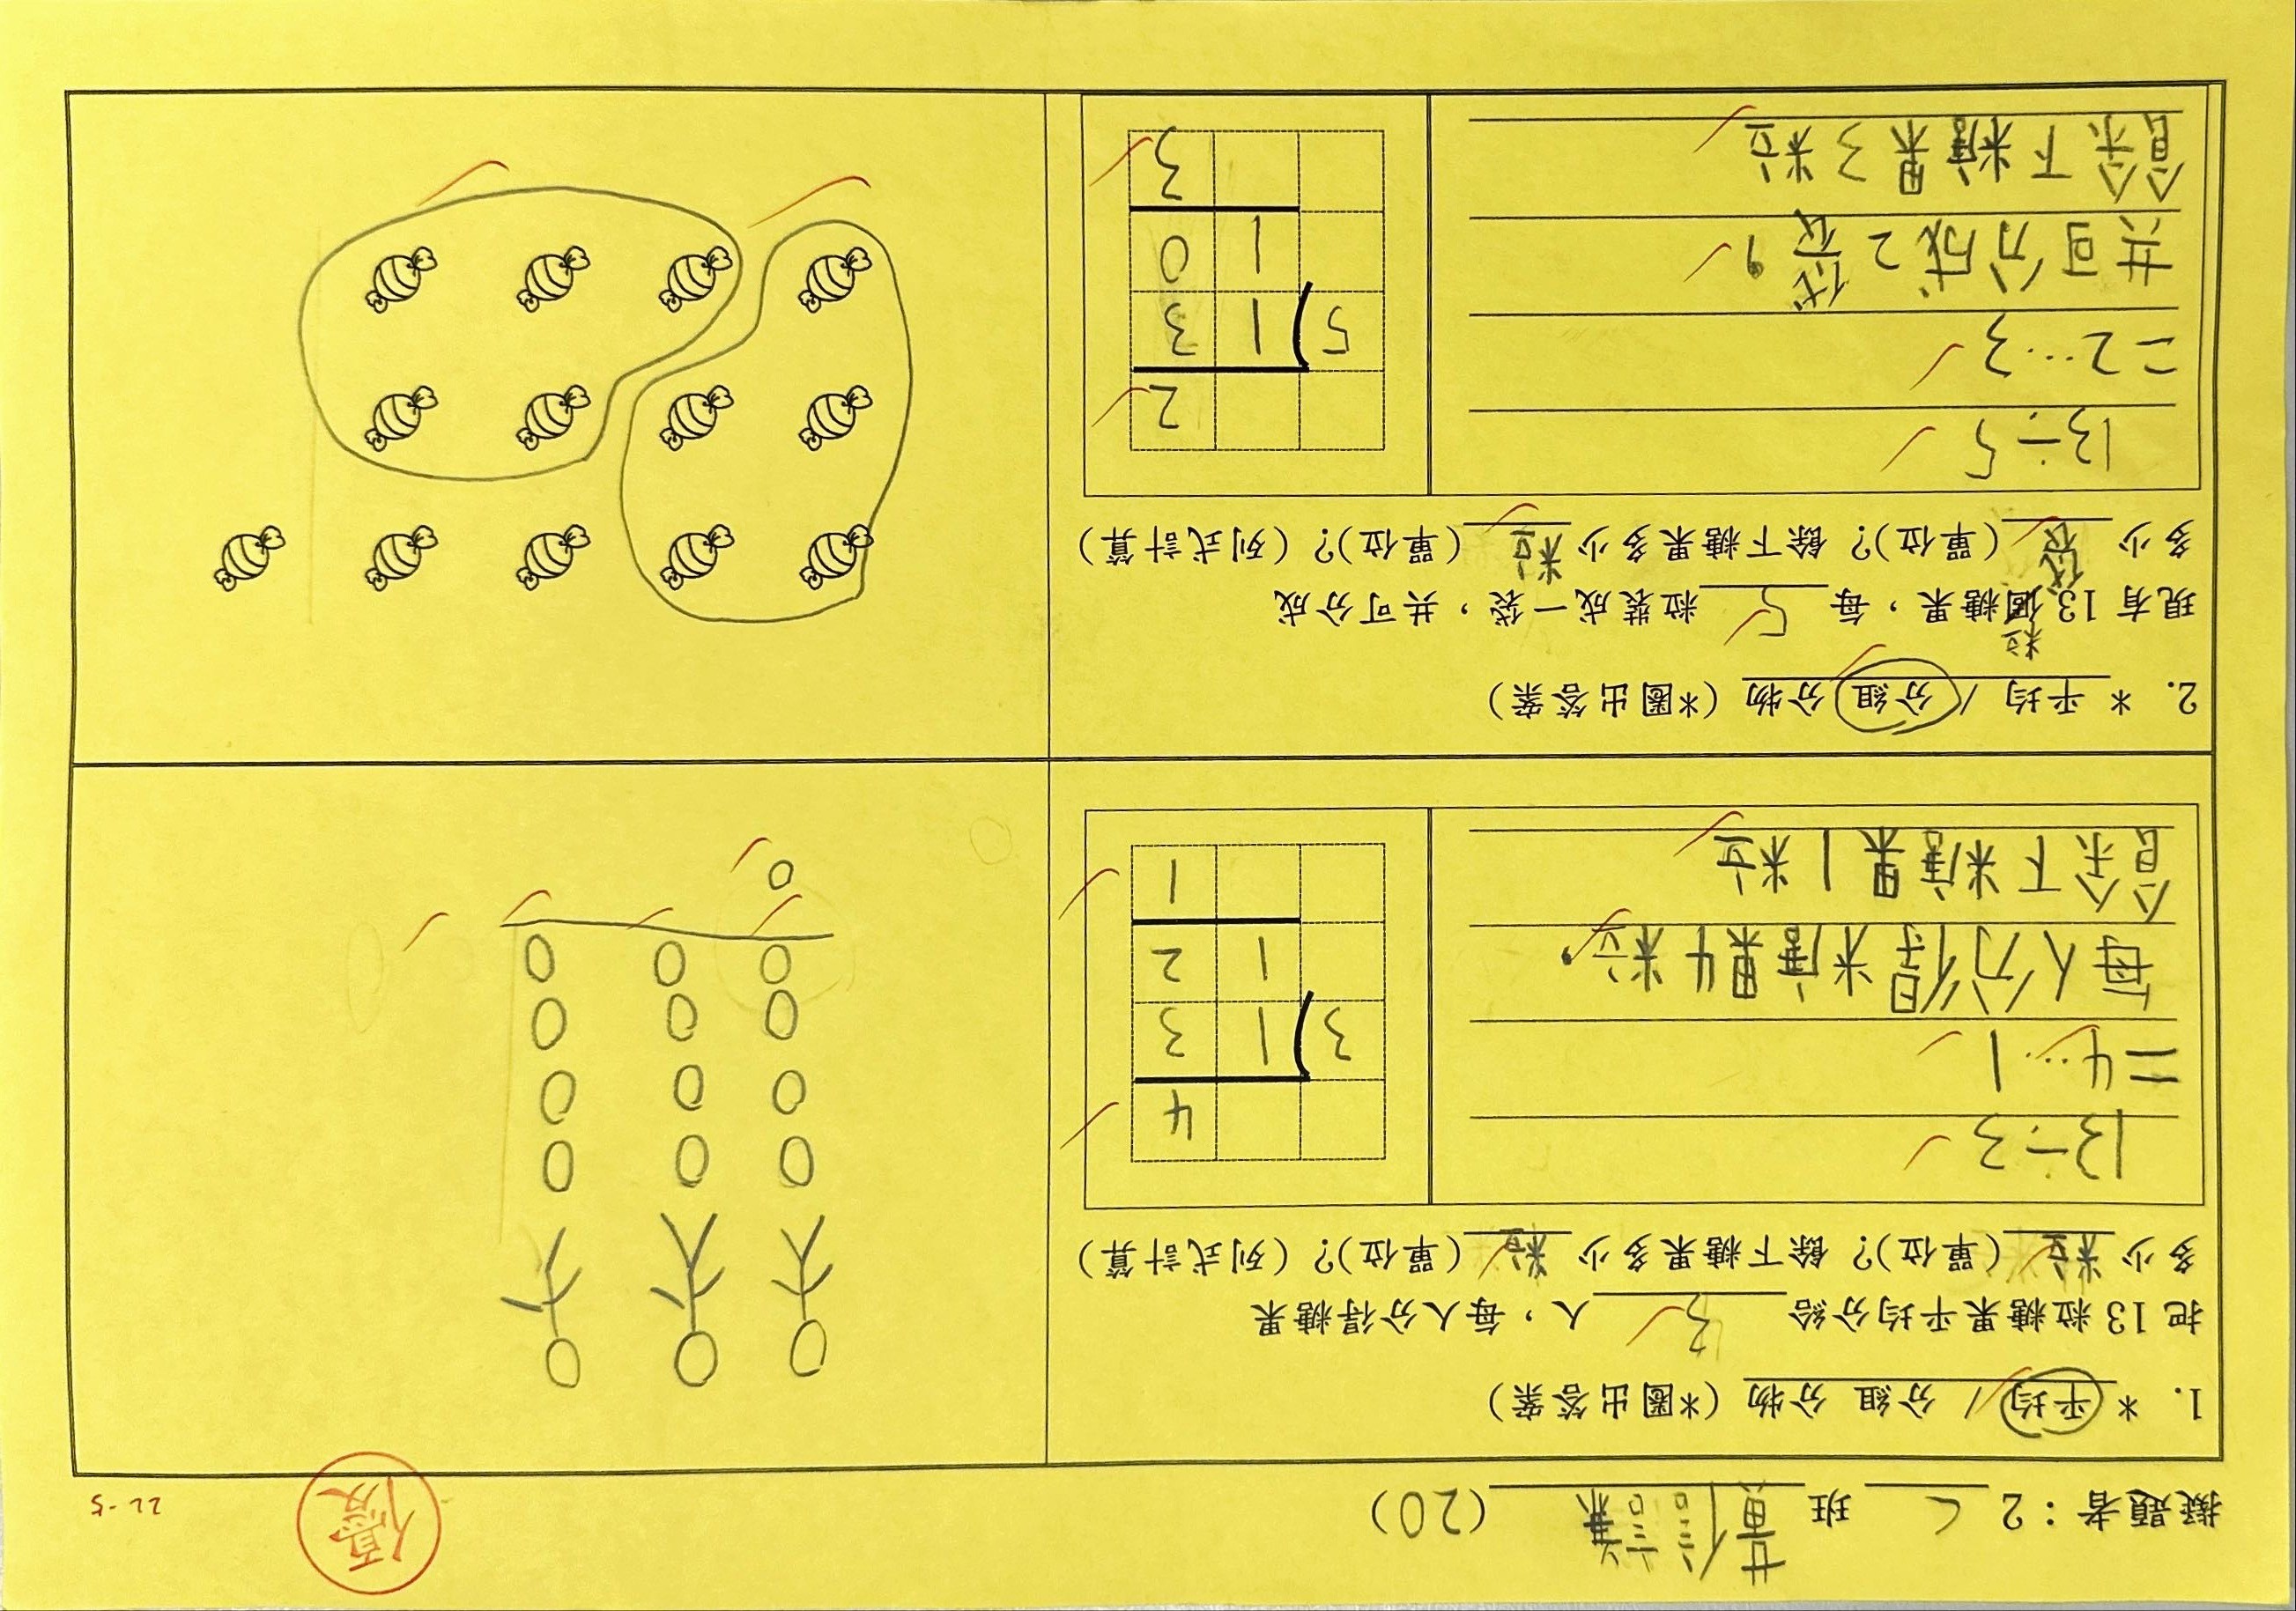 擬題者：2 C 班 黃信謙 (20)
優
22-5
1. * 平均 / 分組 分物 (*圈出答案)
把 13 粒糖果平均分給 3 人，每人分得糖果
多少 粒 (單位)? 餘下糖果多少 粒 (單位)? (列式計算)
13÷3
=4…1
每人分得糖果4粒。
餘下糖果1粒
4
3 1 3
1 2
1
2. * 平均 / 分組 分物 (*圈出答案)
粒
現有 13 個糖果，每 5 粒裝成一袋，共可分成
多少 袋 (單位)? 餘下糖果多少 粒 (單位)? (列式計算)
13÷5
=2…3
共可分成2袋。
餘下糖果3粒
2
5 1 3
1 0
3